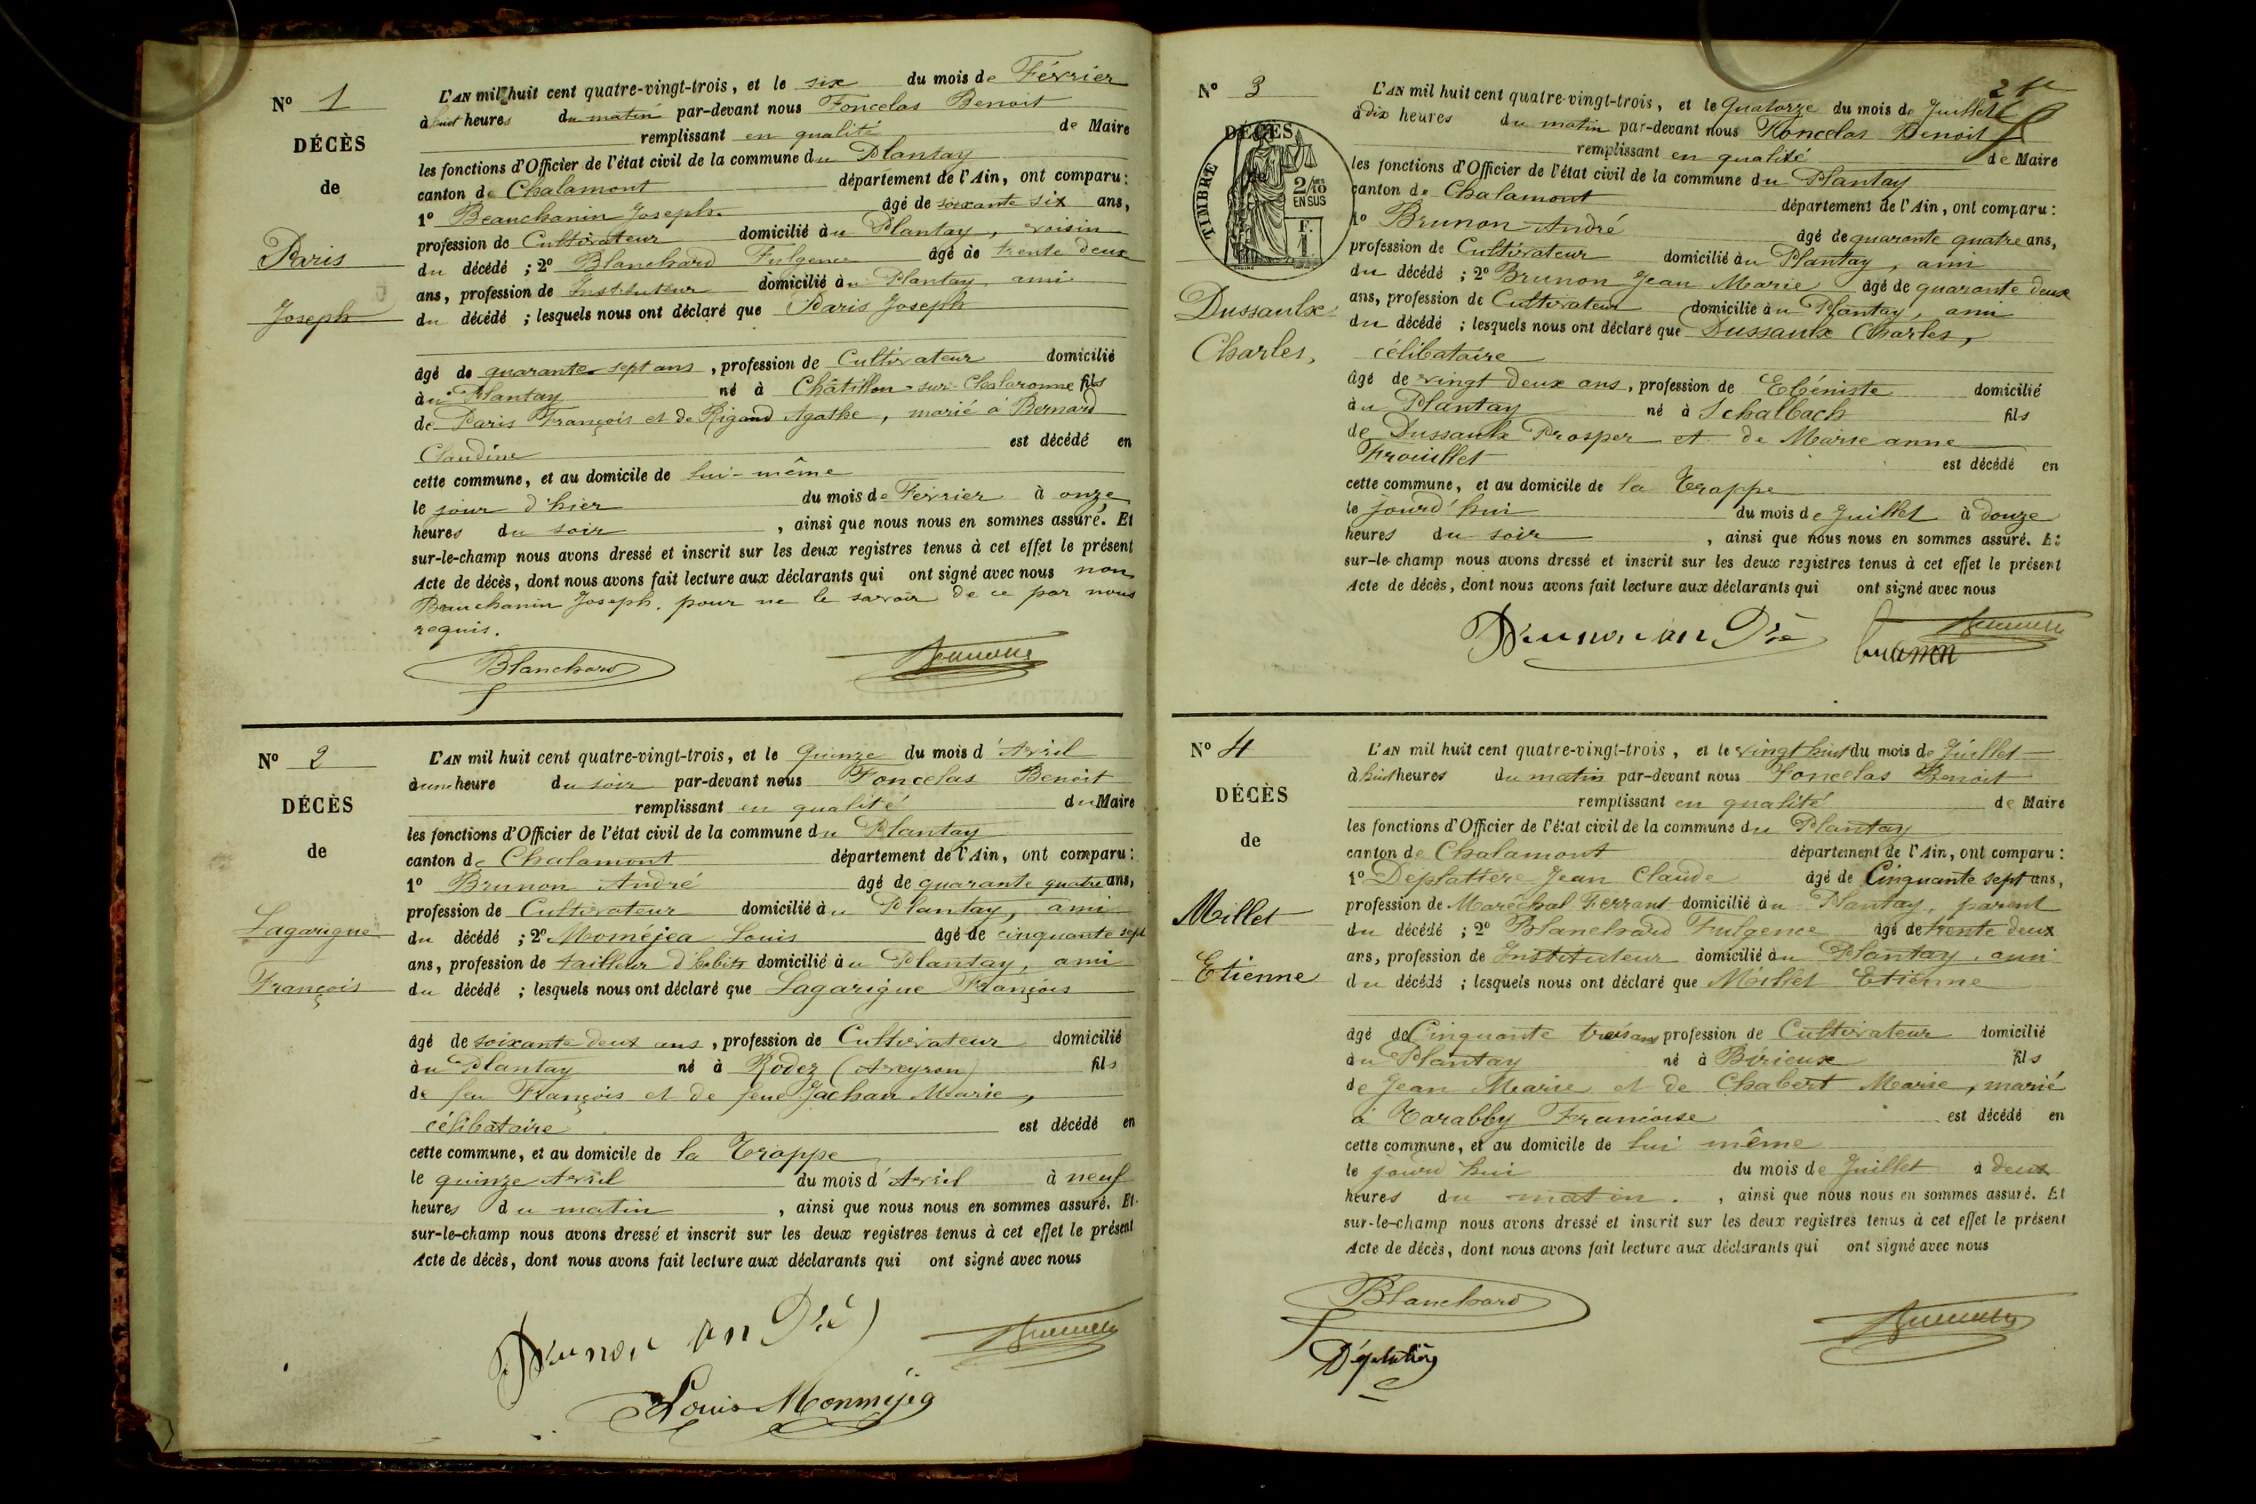 N° 1
DÉCÈS
de
Paris
Joseph
L'AN mil huit cent quatre-vingt-trois, et le six du mois de Février
à huit heures du matin par-devant nous Foncelas Benoit
remplissant en qualité de Maire
les fonctions d'Officier de l'état civil de la commune du Plantay
canton de Chalamont département de l'Ain, ont comparu :
1° Beauchanin Joseph. âgé de soixante six ans,
profession de Cultivateur domicilié au Plantay, voisin
du décédé ; 2° Blanchard Fulgence âgé de trente deux
ans, profession de Instituteur domicilié au Plantay ami
du décédé ; lesquels nous ont déclaré que Paris Joseph
âgé de quarante sept ans, profession de Cultivateur domicilié
au Plantay né à Châtillon-sur-Chalaronne fils
de Paris François et de Rigaud Agathe, marié à Bernard
Claudine est décédé en
cette commune, et au domicile de lui-même
le jour d'hier du mois de Février à onze
heures du soir, ainsi que nous nous en sommes assuré. Et
sur-le-champ nous avons dressé et inscrit sur les deux registres tenus à cet effet le présent
Acte de décès, dont nous avons fait lecture aux déclarants qui ont signé avec nous non
Beauchanin Joseph. pour ne le savoir de ce par nous
requis.
Blanchard
N° 2
DÉCÈS
de
Lagarigue
François
L'AN mil huit cent quatre-vingt-trois, et le quinze du mois d'Avril
à une heure du soir par-devant nous Foncelas Benoit
remplissant en qualité du Maire
les fonctions d'Officier de l'état civil de la commune du Plantay
canton de Chalamont département de l'Ain, ont comparu :
1° Brunon André âgé de quarante quatre ans,
profession de Cultivateur domicilié au Plantay, ami
du décédé ; 2° Moméjea Louis âgé de cinquante sept
ans, profession de tailleur d'habits domicilié au Plantay, ami
du décédé ; lesquels nous ont déclaré que Lagarigue François
âgé de soixante deux ans, profession de Cultivateur domicilié
au Plantay né à Rodez (Aveyron) fils
de feu François et de feue Jachau Marie,
célibataire est décédé en
cette commune, et au domicile de la Trappe
le quinze Avril du mois d'Avril à neuf
heures du matin, ainsi que nous nous en sommes assuré. Et
sur-le-champ nous avons dressé et inscrit sur les deux registres tenus à cet effet le présent
Acte de décès, dont nous avons fait lecture aux déclarants qui ont signé avec nous
Brunon an Dré
Louis Monméjea
2
N° 3
DÉCÈS
TIMBRE
2/10
EN SUS
F.
1
Dussaulx
Charles,
L'AN mil huit cent quatre-vingt-trois, et le Quatorze du mois de Juillet
à dix heures du matin par-devant nous Foncelas Benoit
remplissant en qualité de Maire
les fonctions d'Officier de l'état civil de la commune du Plantay
canton de Chalamont département de l'Ain, ont comparu :
1° Brunon André âgé de quarante quatre ans,
profession de Cultivateur domicilié au Plantay, ami
du décédé ; 2° Brunon Jean Marie âgé de quarante deux
ans, profession de Cultivateur domicilié au Plantay, ami
du décédé ; lesquels nous ont déclaré que Dussaulx Charles,
célibataire
âgé de vingt deux ans, profession de Ebéniste domicilié
au Plantay né à Schalbach fils
de Dussaulx Prosper et de Marie anne
Frouillet est décédé en
cette commune, et au domicile de la Trappe
le jourd'hui du mois de Juillet à douze
heures du soir, ainsi que nous nous en sommes assuré. Et
sur-le-champ nous avons dressé et inscrit sur les deux registres tenus à cet effet le présent
Acte de décès, dont nous avons fait lecture aux déclarants qui ont signé avec nous
Brunon an Dré
N° 4
DÉCÈS
de
Millet
Etienne
L'AN mil huit cent quatre-vingt-trois, et le vingt huit du mois de Juillet
à huit heures du matin par-devant nous Foncelas Benoit
remplissant en qualité de Maire
les fonctions d'Officier de l'état civil de la commune du Plantay
canton de Chalamont département de l'Ain, ont comparu :
1° Deplattère Jean Claude âgé de Cinquante sept ans,
profession de Maréchal Ferrant domicilié au Plantay, parent
du décédé ; 2° Blanchard Fulgence âgé de trente deux
ans, profession de Instituteur domicilié au Plantay, ami
du décédé ; lesquels nous ont déclaré que Millet Etienne
âgé de Cinquante trois ans profession de Cultivateur domicilié
au Plantay né à Birieux fils
de Jean Marie et de Chabert Marie, marié
à Tarabby Francoise est décédé en
cette commune, et au domicile de lui même
le jourd'hui du mois de Juillet à deux
heures du matin., ainsi que nous nous en sommes assuré. Et
sur-le-champ nous avons dressé et inscrit sur les deux registres tenus à cet effet le présent
Acte de décès, dont nous avons fait lecture aux déclarants qui ont signé avec nous
Blanchard